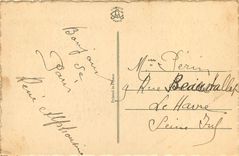 Bonjour
de
Paris
René Alphonsine
Mme Périn
9 Rue Beauvallet
Le Havre
Seine Inf